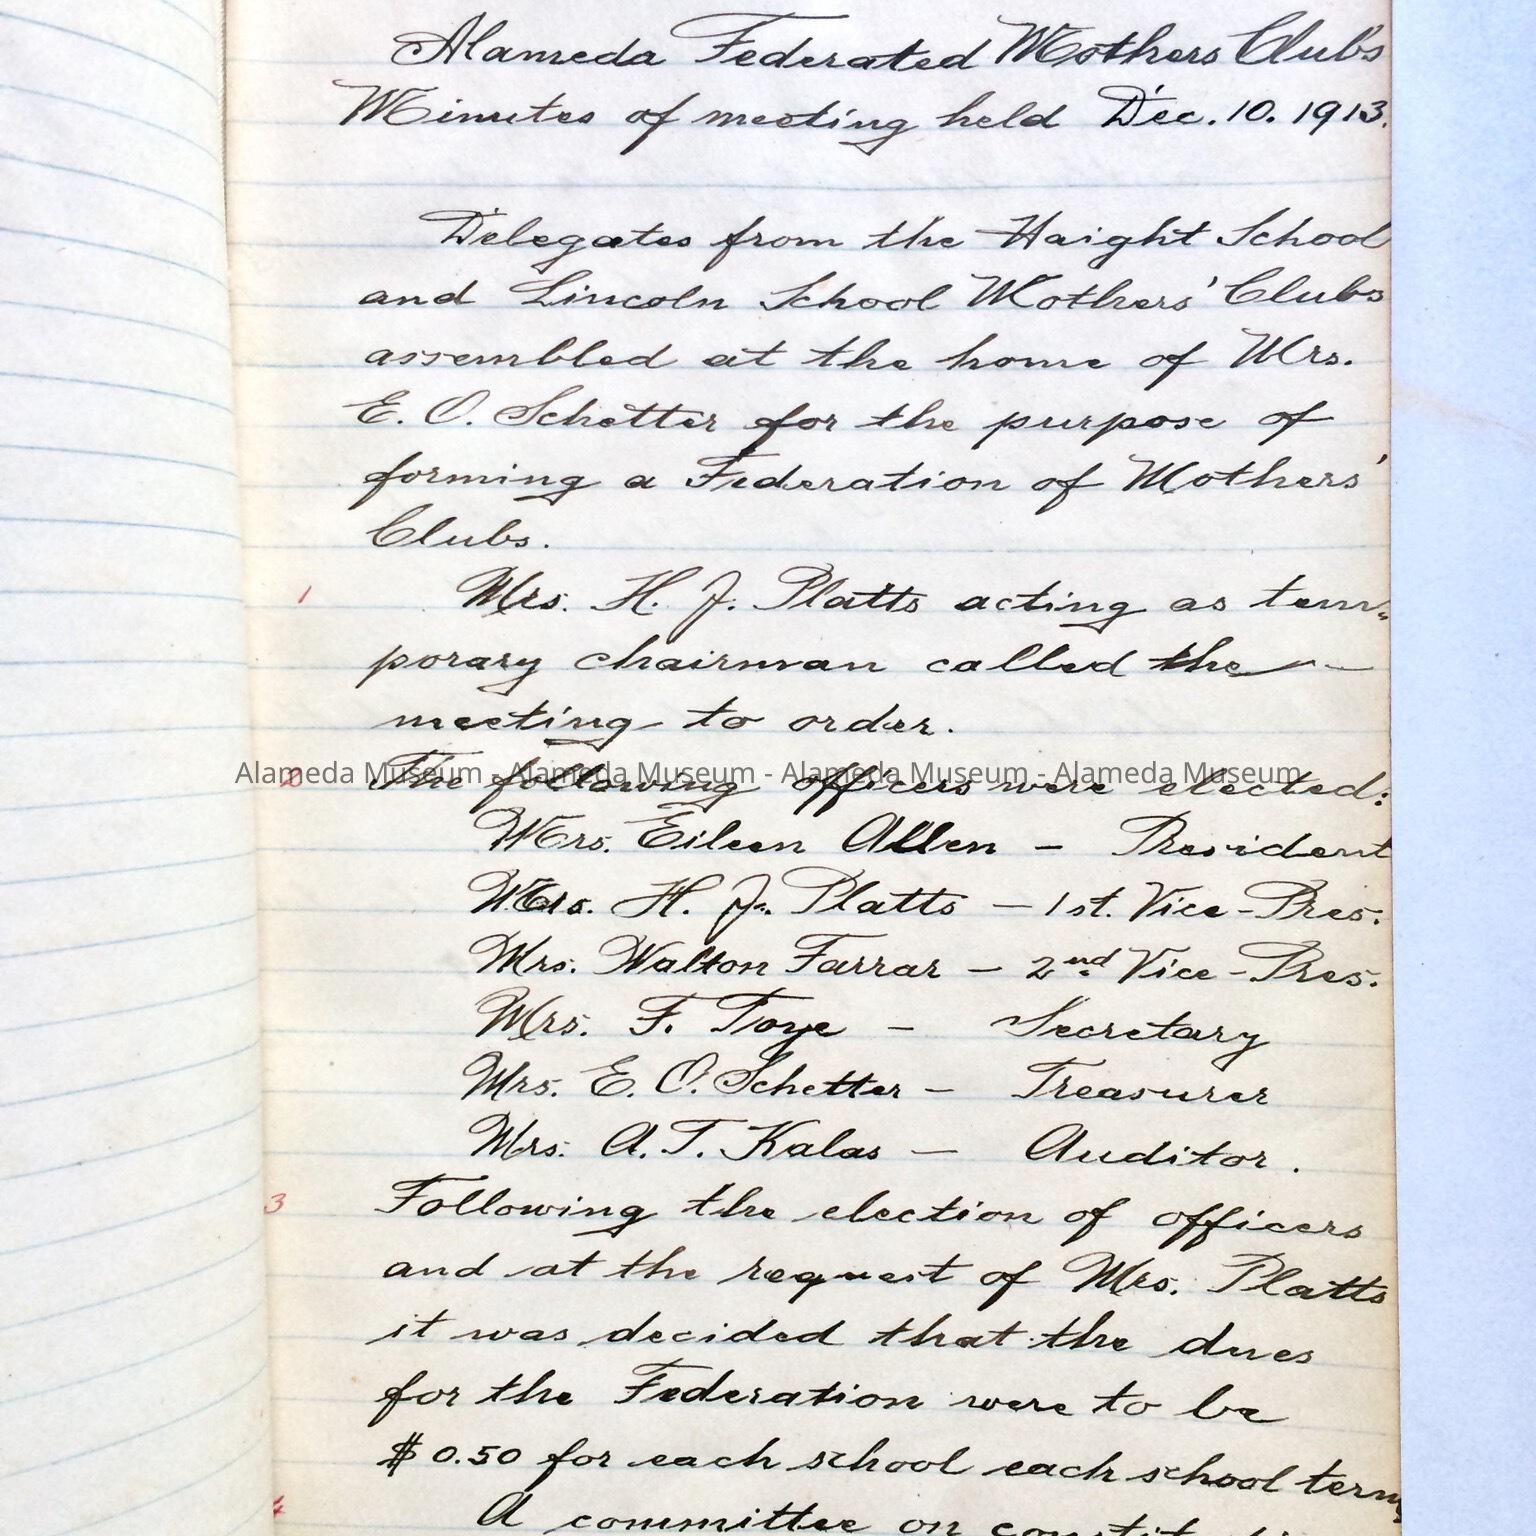 Alameda Federated Mothers Clubs
Minutes of meeting held Dec. 10. 1913.
Delegates from the Haight School
and Lincoln School Mothers' Clubs
assembled at the home of Mrs.
E. O. Schetter for the purpose of
forming a Federation of Mothers'
Clubs.
1 Mrs. H. J. Platts acting as tem-
porary chairman called the
meeting to order.
Alameda Museum - Alameda Museum - Alameda Museum - Alameda Museum
2 The following officers were elected:
Mrs. Eileen Allen - President
Mrs. H. J. Platts - 1st. Vice-Pres.
Mrs. Walton Farrar - 2nd Vice-Pres.
Mrs. F. Toye - Secretary
Mrs. E. O. Schetter - Treasurer
Mrs. A. T. Kalas - Auditor.
3 Following the election of officers
and at the request of Mrs. Platts
it was decided that the dues
for the Federation were to be
$0.50 for each school each school term
4 A committee on